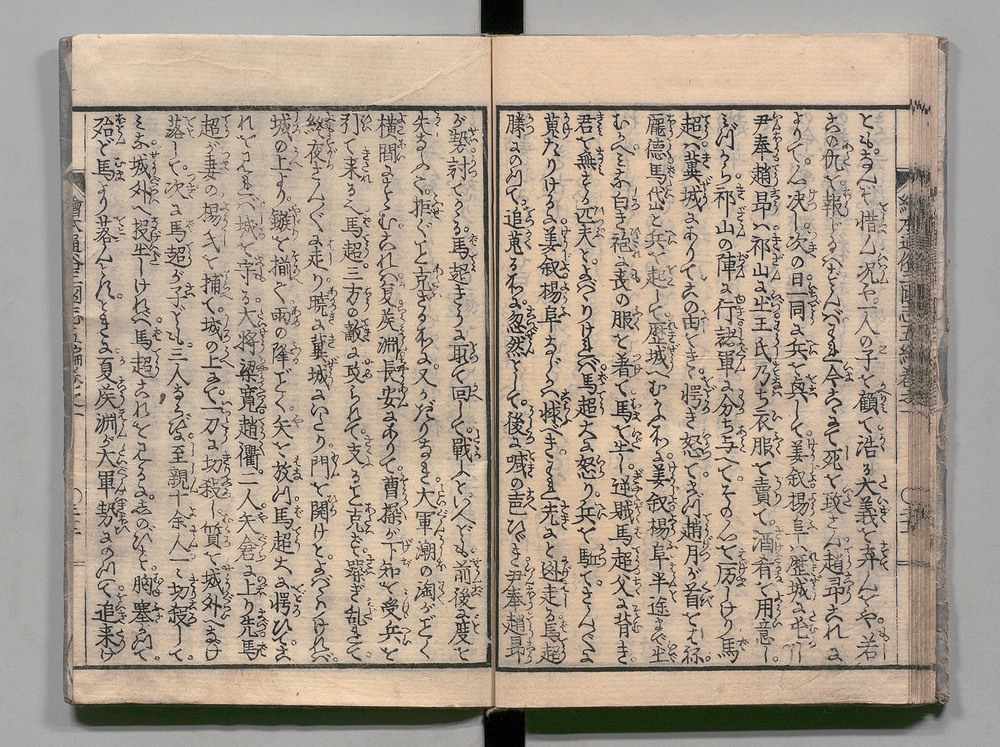 とも。なんぞ惜ん。況や。一人の子を顧て浩る大義を弃んや。若
この仇を報じなば。さんべきと今にて死を致さん。趙昂これに
よりて心決し。次の日一同に兵を具して。姜叙楊阜は歴城に屯し。
尹奉趙昂は祁山に出。王氏乃ち衣服を賣て。酒肴を用意し。
みづから祁山の陣に行。諸軍に分ち与へてその心を厉しけり。馬
超は冀城にありてこの由をきゝ。愕き怒てまづ趙月が首をはね。
龐德馬岱と兵を起して。歴城へむかふ所に。姜叙楊阜半途まで出
むかへ。みな白き袍に喪の服を着て。馬を出し。逆賊馬超父に背き。
君を無する匹夫とよばゝりければ。馬超大に怒り。兵を駈てさんくに
蒐たりける。姜叙楊阜なじかは怺べき。もと先きと凶走る。馬超
勝にのつて。追蒐る所に。忽然として。後に喊の声ひゞき。尹奉趙昂
が勢討てかゝる。馬超きうに取て回し。戰んといへども。前後に度を
失なふて。拒ぐこと克ざる所に。又かたはらより大軍潮の涌がごとく
横間にきたる。これは夏矦淵長安にありて。曹操が下知を受。兵を
引て来るに。馬超三方の敵に攻られて。支ること克ず。騒ぎ乱れて
終夜さんくに走り。暁に冀城にいたり。門を開けとよばゝりければ。
城の上より。鏃を揃へて雨の降ごとく矢を放つ。馬超大に愕ひてこ
れをみれば。城を守る大将梁寛趙衢。二人矢倉に上り。先馬
超が妻の楊氏を捕て。城の上にて一刀に切殺し。質を城外へなげ
落して。次に馬超が子ども三人。ならびに至親十余人。一々切殺して。
みな城外へ投出しければ。馬超これをみるに。しのびず。胸塞つて。
殆ど馬より落んとしたるとき。夏矦淵が大軍勢にのつて追来け
繪本通俗三國志五編卷之一